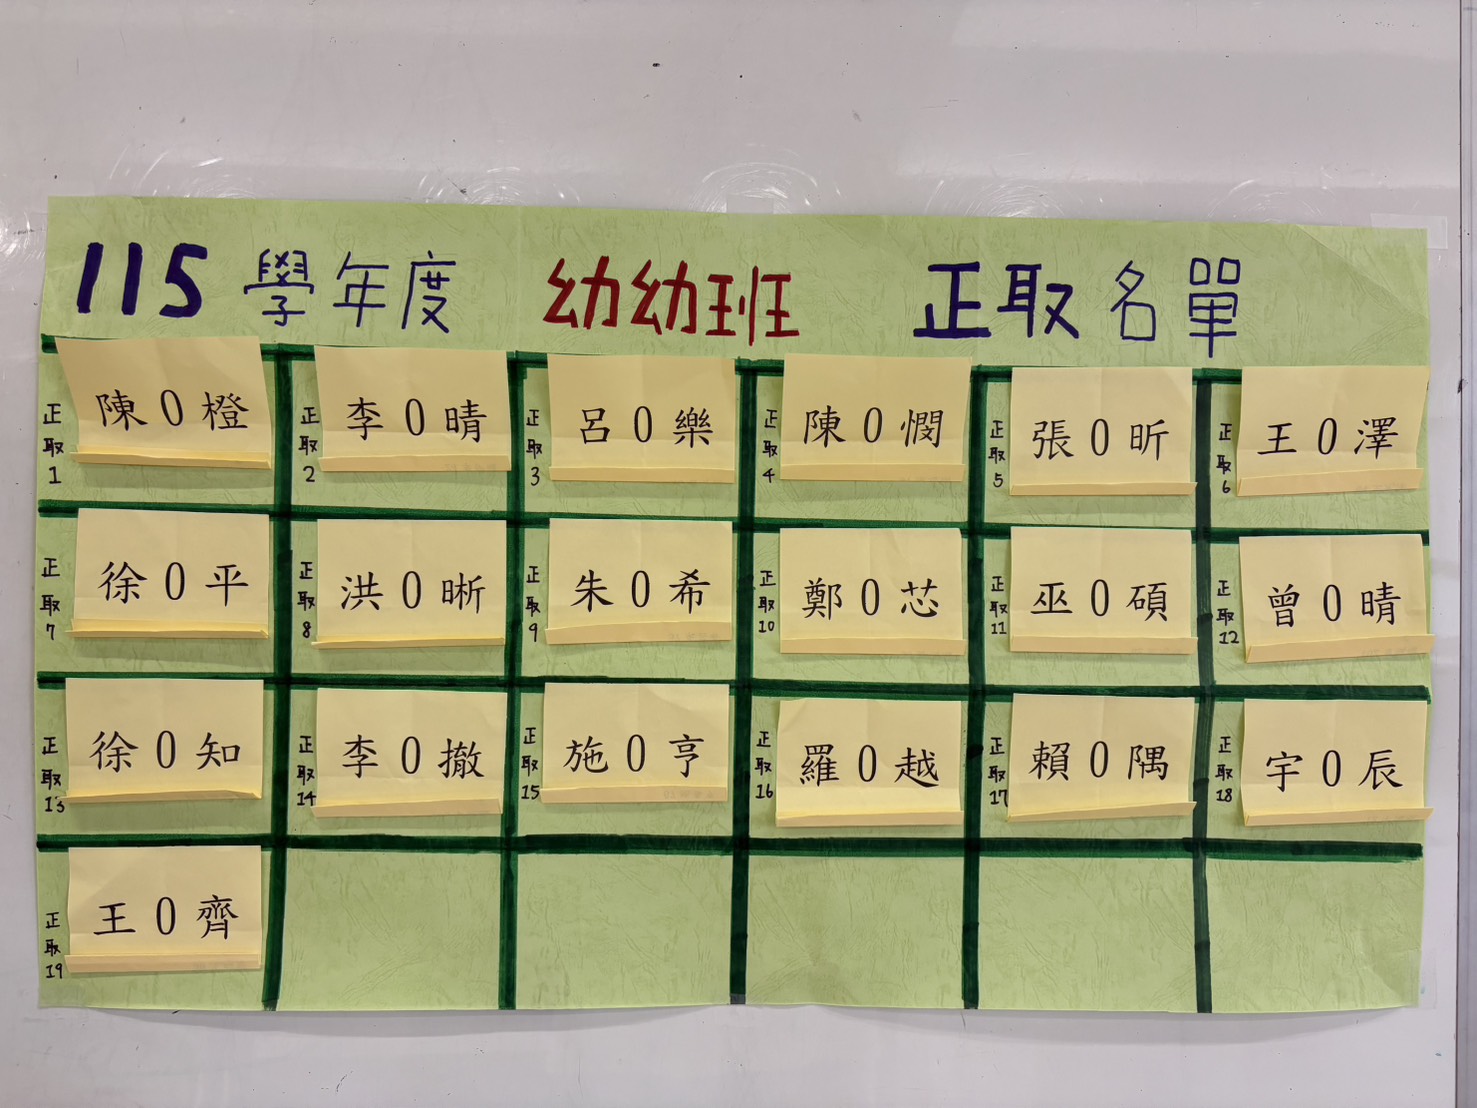 115 學年度 幼幼班 正取名單
正取1 陳0橙
正取2 李0晴
正取3 呂0樂
正取4 陳0憫
正取5 張0昕
正取6 王0澤
正取7 徐0平
正取8 洪0晰
正取9 朱0希
正取10 鄭0芯
正取11 巫0碩
正取12 曾0晴
正取13 徐0知
正取14 李0撤
正取15 施0亨
正取16 羅0越
正取17 賴0隅
正取18 宇0辰
正取19 王0齊